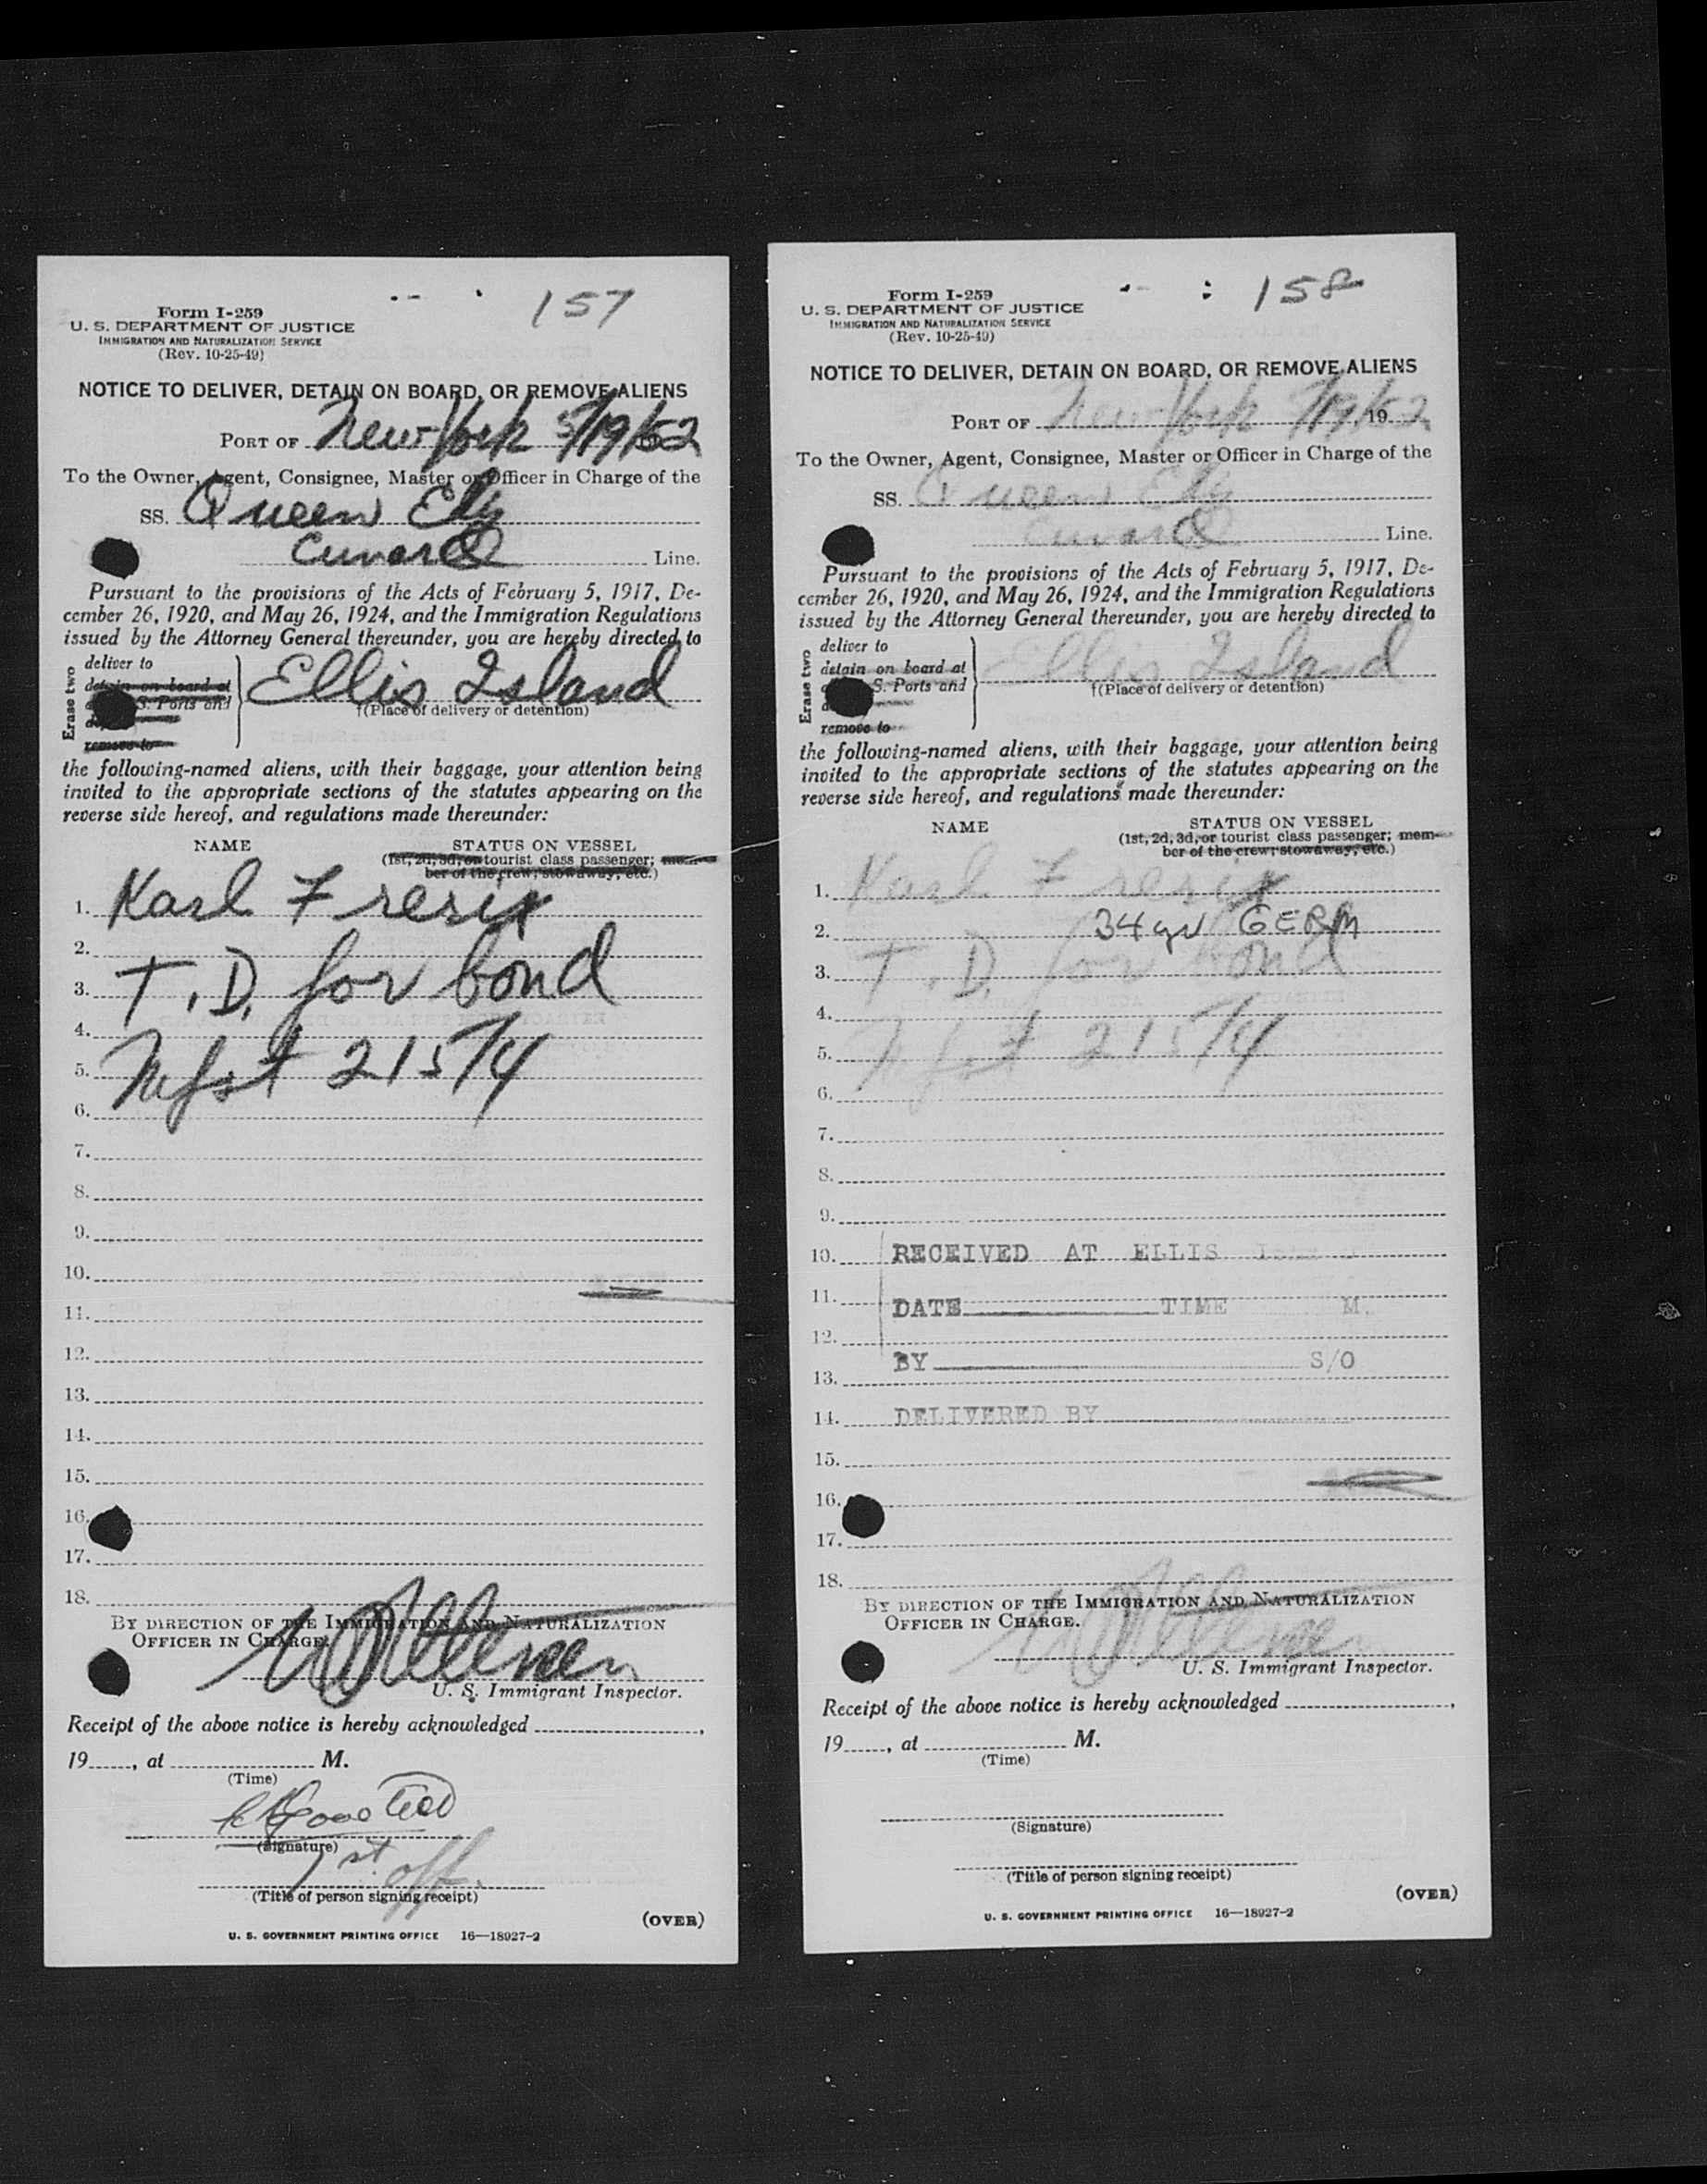 157
Form I-259
U. S. DEPARTMENT OF JUSTICE
IMMIGRATION AND NATURALIZATION SERVICE
(Rev. 10-25-49)
NOTICE TO DELIVER, DETAIN ON BOARD, OR REMOVE ALIENS
PORT OF New York 5/19/52
To the Owner, Agent, Consignee, Master or Officer in Charge of the
SS. Queen Eliz
Cunard Line.
Pursuant to the provisions of the Acts of February 5, 1917, De-
cember 26, 1920, and May 26, 1924, and the Immigration Regulations
issued by the Attorney General thereunder, you are hereby directed to
Erase two
deliver to
detain on board at
S. Ports and
remove to
Ellis Island
†(Place of delivery or detention)
the following-named aliens, with their baggage, your attention being
invited to the appropriate sections of the statutes appearing on the
reverse side hereof, and regulations made thereunder:
NAME STATUS ON VESSEL
(1st, 2d, 3d, or tourist class passenger; mem-
ber of the crew; stowaway, etc.)
1. Karl Freri
2.
3. T.D. for bond
4.
5. Mfst 215/4
6.
7.
8.
9.
10.
11.
12.
13.
14.
15.
16.
17.
18.
BY DIRECTION OF THE IMMIGRATION AND NATURALIZATION
OFFICER IN CHARGE.
U. S. Immigrant Inspector.
Receipt of the above notice is hereby acknowledged
19 , at M.
(Time)
(Signature)
1st. off.
(Title of person signing receipt)
(OVER)
U. S. GOVERNMENT PRINTING OFFICE 16—18927-2
158
Form I-259
U. S. DEPARTMENT OF JUSTICE
IMMIGRATION AND NATURALIZATION SERVICE
(Rev. 10-25-49)
NOTICE TO DELIVER, DETAIN ON BOARD, OR REMOVE ALIENS
PORT OF New York 5/19, 1952
To the Owner, Agent, Consignee, Master or Officer in Charge of the
SS. Queen Eliz
Cunard Line.
Pursuant to the provisions of the Acts of February 5, 1917, De-
cember 26, 1920, and May 26, 1924, and the Immigration Regulations
issued by the Attorney General thereunder, you are hereby directed to
Erase two
deliver to
detain on board at
S. Ports and
remove to
Ellis Island
†(Place of delivery or detention)
the following-named aliens, with their baggage, your attention being
invited to the appropriate sections of the statutes appearing on the
reverse side hereof, and regulations made thereunder:
NAME STATUS ON VESSEL
(1st, 2d, 3d, or tourist class passenger; mem-
ber of the crew; stowaway, etc.)
1. Karl Freri
2. 34 yr GERM
3. T.D. for bond
4.
5. Mfst 215/4
6.
7.
8.
9.
10. RECEIVED AT ELLIS Island
11. DATE TIME M.
12.
BY S/O
13.
14. DELIVERED BY
15.
16.
17.
18.
BY DIRECTION OF THE IMMIGRATION AND NATURALIZATION
OFFICER IN CHARGE.
U. S. Immigrant Inspector.
Receipt of the above notice is hereby acknowledged ,
19 , at M.
(Time)
(Signature)
(Title of person signing receipt)
(OVER)
U. S. GOVERNMENT PRINTING OFFICE 16—18927-2